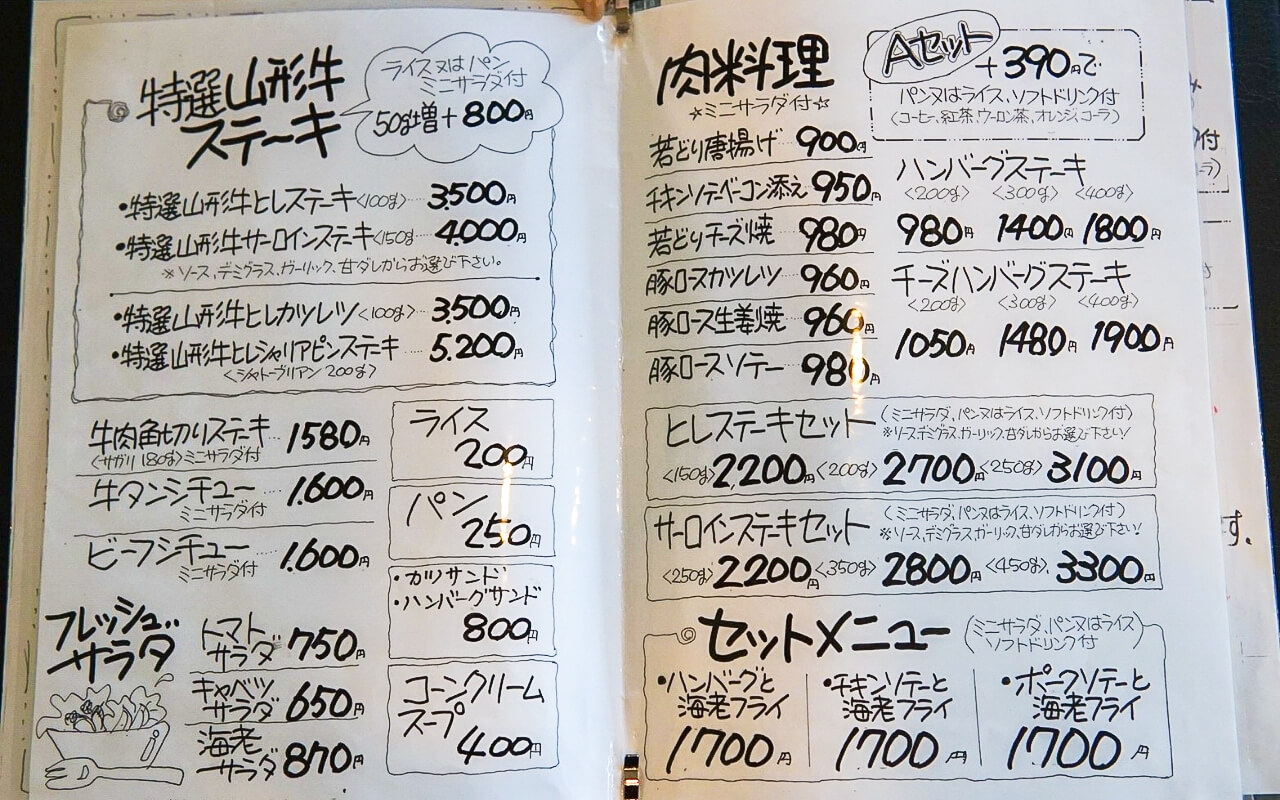 特選山形牛
ステーキ
ライス又はパン
ミニサラダ付
50g増+800円
・特選山形牛ヒレステーキ<100g>……3.500円
・特選山形牛サーロインステーキ<150g……4.000円
※ソース、デミグラス、ガーリック、甘ダレからお選び下さい。
・特選山形牛ヒレカツレツ<100g>……3.500円
・特選山形牛ヒレシャリアピンステーキ……5.200円
<シャトーブリアン200g>
牛肉角切りステーキ 1580円
<サガリ180g>ミニサラダ付
牛タンシチュー…1.600円
ミニサラダ付
ビーフシチュー……1.600円
ミニサラダ付
フレッシュ
サラダ
トマト
サラダ 750円
キャベツ
サラダ 650円
海老
サラダ 870円
ライス
200円
パン
250円
・カツサンド
・ハンバーグサンド
800円
コーンクリーム
スープ
400円
肉料理
☆ミニサラダ付☆
若どり唐揚げ 900円
チキンソテーベーコン添え 950円
若どりチーズ焼 980円
豚ロースカツレツ 960円
豚ロース生姜焼 960円
豚ロースソテー 980円
Aセット
+390円で
パン又はライス、ソフトドリンク付
(コーヒー、紅茶、ウーロン茶、オレンジ、コーラ)
ハンバーグステーキ
<200g> <300g> <400g>
980円 1400円 1800円
チーズハンバーグステーキ
<200g> <300g> <400g>
1050円 1480円 1900円
ヒレステーキセット
(ミニサラダ、パン又はライス、ソフトドリンク付)
※ソース、デミグラス、ガーリック、甘ダレからお選び下さい!
<150g>2200円<200g>2700円<250g>3100円
サーロインステーキセット
(ミニサラダ、パン又はライス、ソフトドリンク付)
※ソース、デミグラス、ガーリック、甘ダレからお選び下さい!
<250g>2200円<350g>2800円<450g>3300円
セットメニュー
(ミニサラダ、パン又はライス
ソフトドリンク付)
・ハンバーグと
海老フライ
1700円
・チキンソテーと
海老フライ
1700円
・ポークソテーと
海老フライ
1700円
付
ラ)
す.